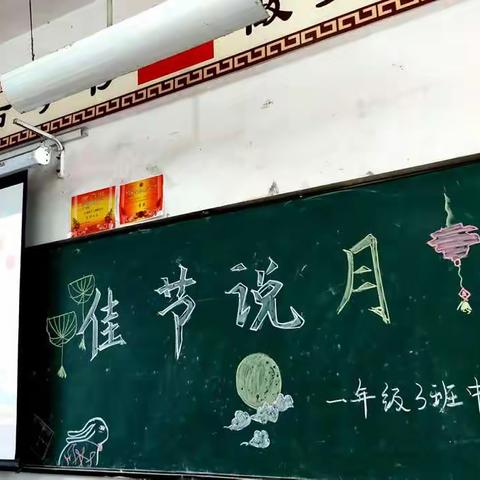 佳节说月
一年级3班中